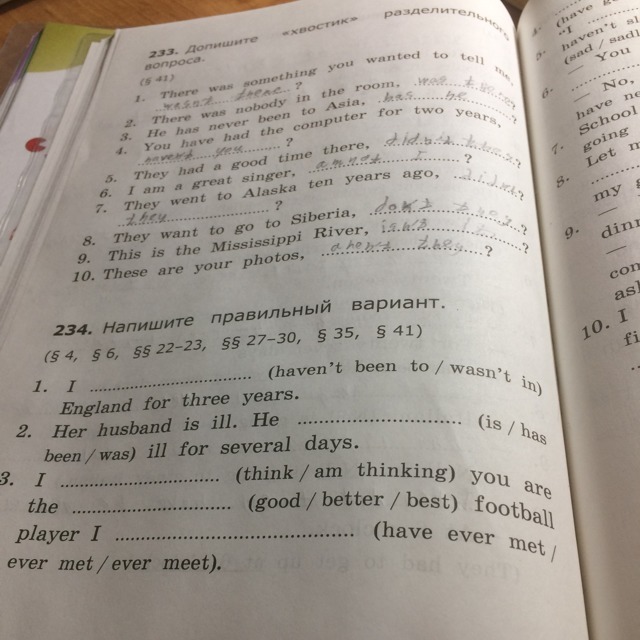 233. Допишите «хвостик» разделительного
вопроса.
(§ 41)
1. There was something you wanted to tell me,
wasn't there ?
2. There was nobody in the room, was there?
3. He has never been to Asia, has he ?
4. You have had the computer for two years,
haven't you ?
5. They had a good time there, didn't they?
6. I am a great singer, amnot I ?
7. They went to Alaska ten years ago,
they ?
8. They want to go to Siberia, don't they ?
9. This is the Mississippi River, isn't ?
10. These are your photos, they ?
234. Напишите правильный вариант.
(§ 4, § 6, §§ 22–23, §§ 27–30, § 35, § 41)
1. I .............................. (haven't been to / wasn't in)
England for three years.
2. Her husband is ill. He .............................. (is / has
been / was) ill for several days.
3. I .............................. (think / am thinking) you are
the .............................. (good / better / best) football
player I .............................. (have ever met /
ever met / ever meet).
(have go
"I
haven't sl
(sad / sadl
— You
— No,
have ne
School
7.
going
8. Let m
my g
9.
dinn
con
ask
10. I
fi